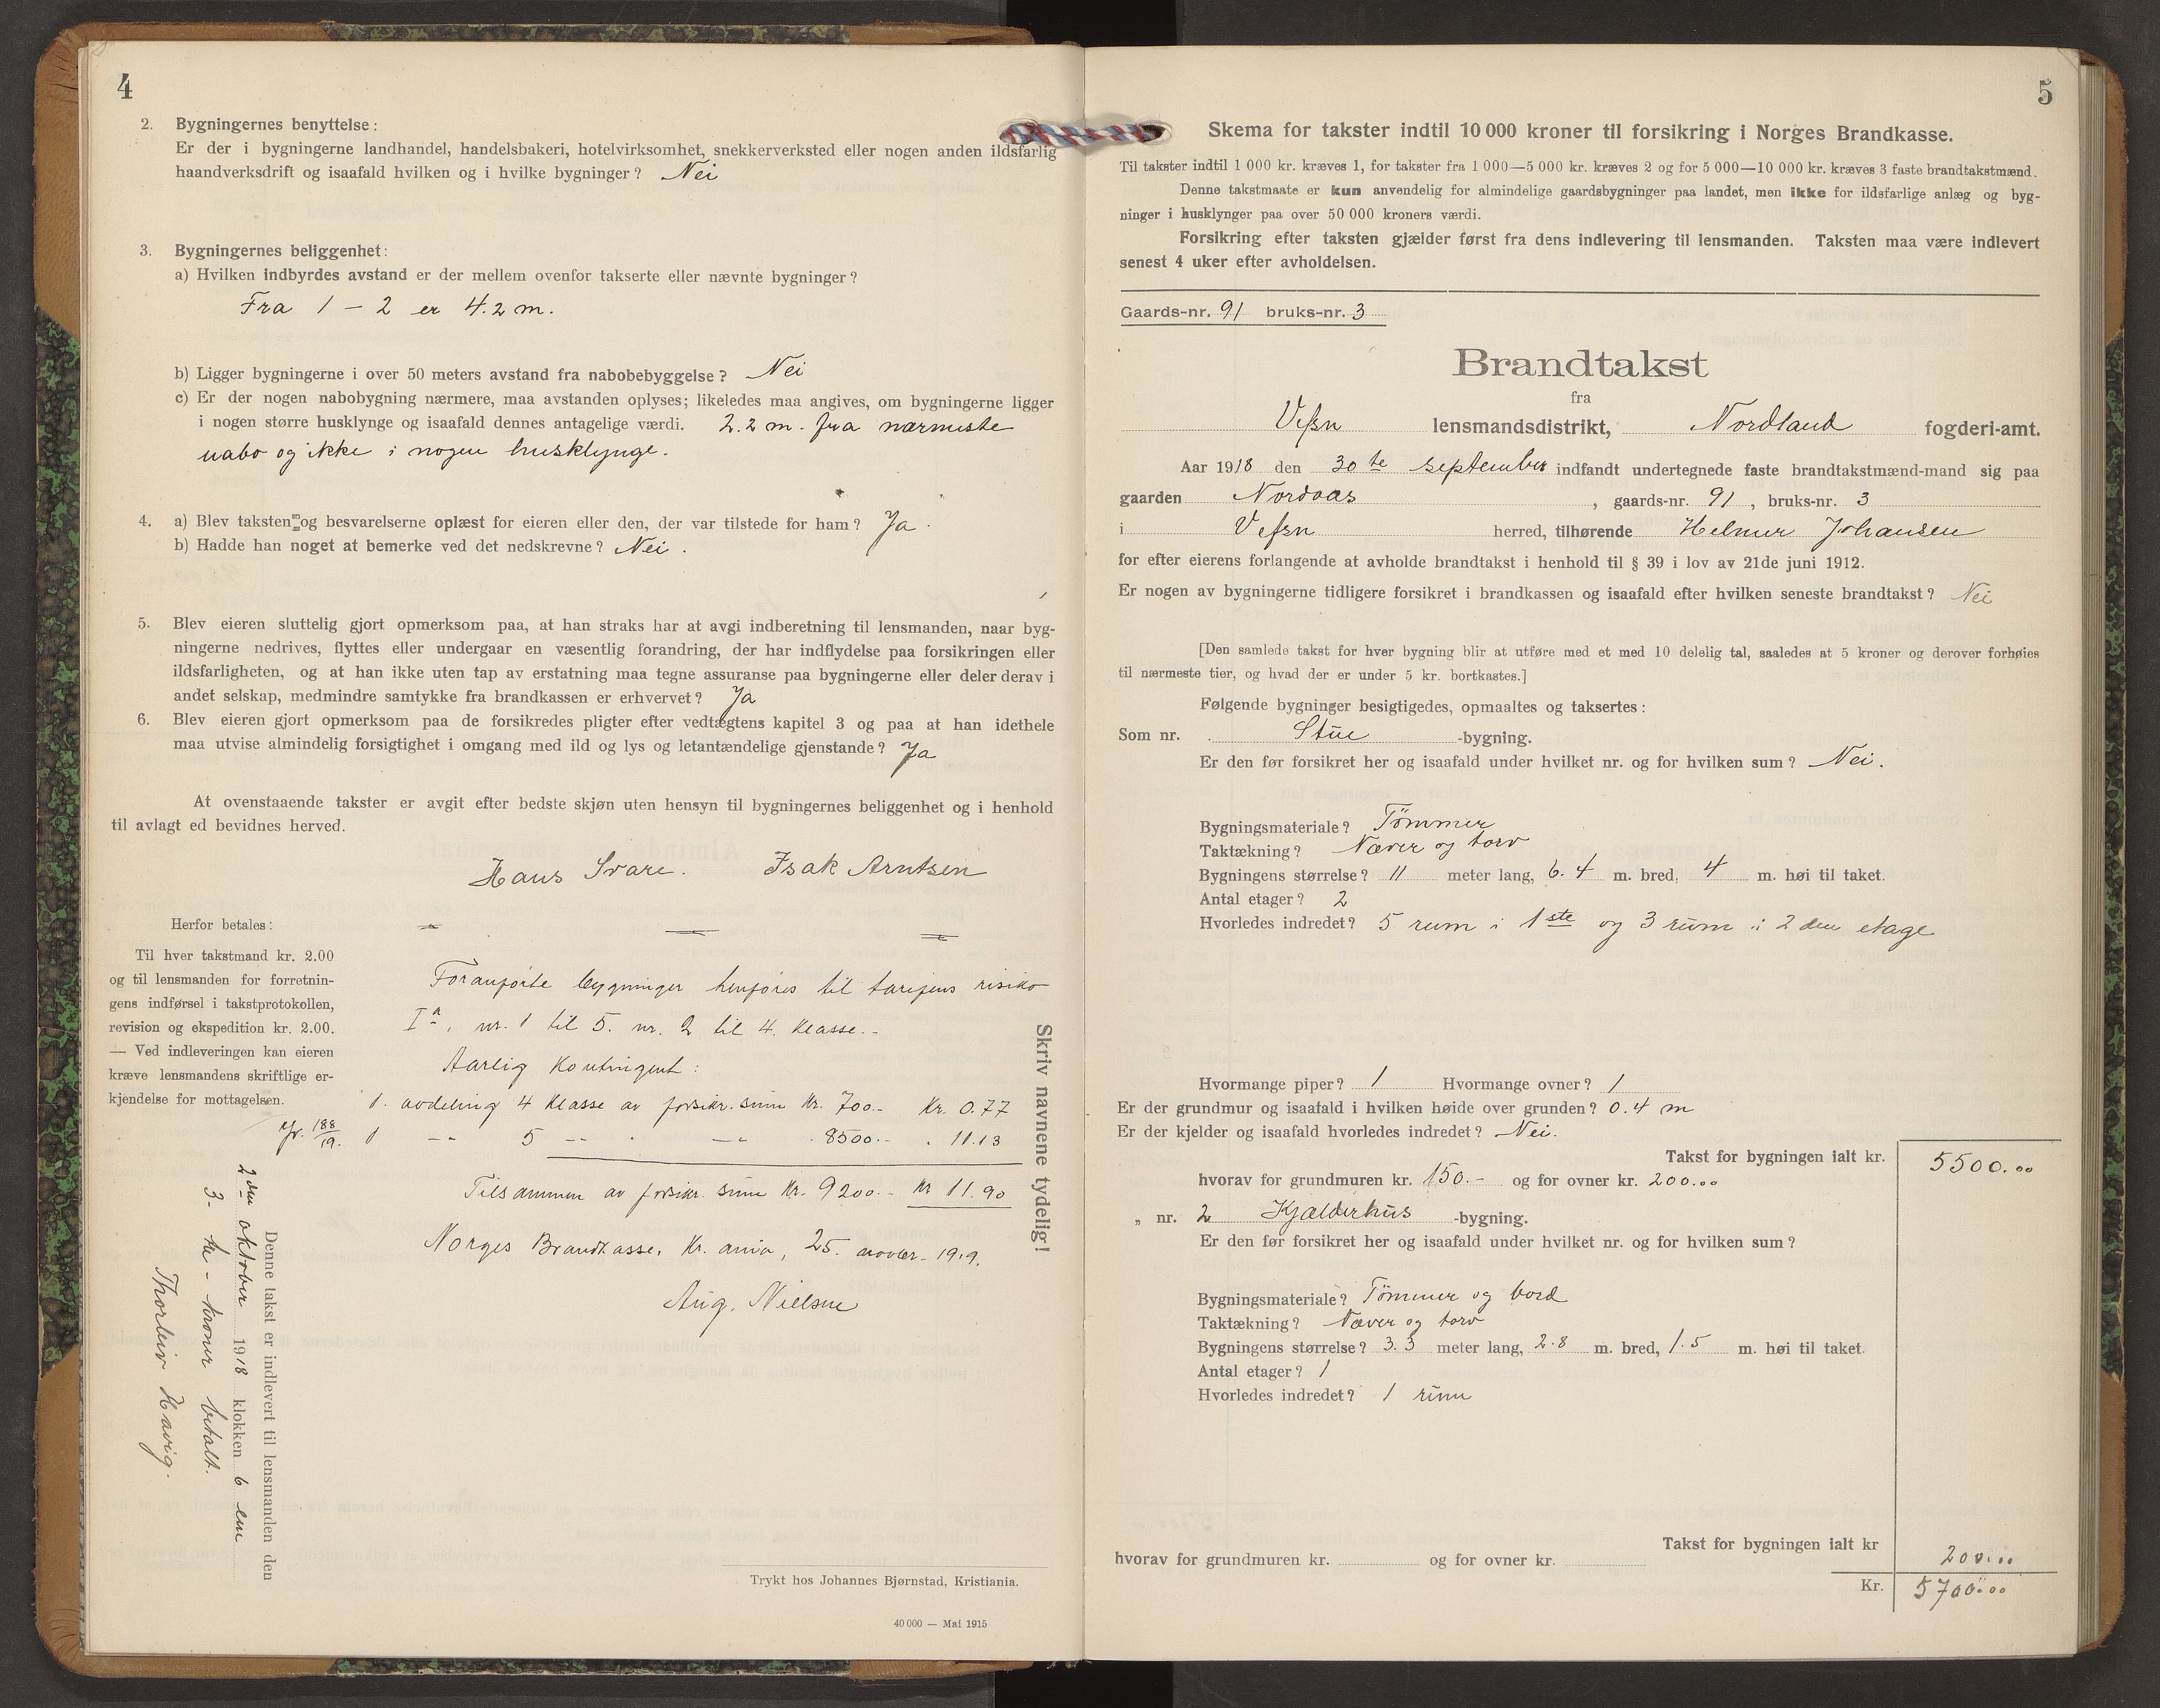 4
2. Bygningernes benyttelse:
Er der i bygningerne landhandel, handelsbakeri, hotelvirksomhet, snekkerverksted eller nogen anden ildsfarlig
haandverksdrift og isaafald hvilken og i hvilke bygninger? Nei
3. Bygningernes beliggenhet:
a) Hvilken indbyrdes avstand er der mellem ovenfor takserte eller nævnte bygninger?
Fra 1 – 2 er 4.2 m.
b) Ligger bygningerne i over 50 meters avstand fra nabobebyggelse? Nei
c) Er der nogen nabobygning nærmere, maa avstanden oplyses; likeledes maa angives, om bygningerne ligger
i nogen større husklynge og isaafald dennes antagelige værdi. 2.2 m. fra nærmeste
nabo og ikke i nogen husklynge.
4. a) Blev taksten og besvarelserne oplæst for eieren eller den, der var tilstede for ham? Ja.
b) Hadde han noget at bemerke ved det nedskrevne? Nei.
5. Blev eieren sluttelig gjort opmerksom paa, at han straks har at avgi indberetning til lensmanden, naar byg-
ningerne nedrives, flyttes eller undergaar en væsentlig forandring, der har indflydelse paa forsikringen eller
ildsfarligheten, og at han ikke uten tap av erstatning maa tegne assuranse paa bygningerne eller deler derav i
andet selskap, medmindre samtykke fra brandkassen er erhvervet? Ja
6. Blev eieren gjort opmerksom paa de forsikredes pligter efter vedtægtens kapitel 3 og paa at han idethele
maa utvise almindelig forsigtighet i omgang med ild og lys og letantændelige gjenstande? Ja
At ovenstaaende takster er avgit efter bedste skjøn uten hensyn til bygningernes beliggenhet og i henhold
til avlagt ed bevidnes herved.
Hans Svare. Isak Arntsen
Herfor betales:
Til hver takstmand kr. 2.00
og til lensmanden for forretnin-
gens indførsel i takstprotokollen,
revision og ekspedition kr. 2.00.
— Ved indleveringen kan eieren
kræve lensmandens skriftlige er-
kjendelse for mottagelsen.
Foranførte bygninger henføres til tarifens risiko
I a, nr. 1 til 5. nr. 2 til 4. klasse.-
Aarlig kontingent:
1. avdeling 4 klasse av forsikr. sum kr. 700.- kr. 0.77
Jr. 188/19. 1 -"- 5 -"- . -"- . 8500.- . 11.13
Tilsammen av forsikr. sum kr. 9200.- kr 11.90
Norges Brandkasse, Kr.ania, 25. novbr. 1919.
Aug. Nielsen
Skriv navnene tydelig!
Denne takst er indlevert til lensmanden den
2den oktober 1918 klokken 6 em
3- tre - kroner betalt.
Thorleiv Havig.
Trykt hos Johannes Bjørnstad, Kristiania.
40 000 — Mai 1915
5
Skema for takster indtil 10 000 kroner til forsikring i Norges Brandkasse.
Til takster indtil 1 000 kr. kræves 1, for takster fra 1 000—5 000 kr. kræves 2 og for 5 000—10 000 kr. kræves 3 faste brandtakstmænd.
Denne takstmaate er kun anvendelig for almindelige gaardsbygninger paa landet, men ikke for ildsfarlige anlæg og byg-
ninger i husklynger paa over 50 000 kroners værdi.
Forsikring efter taksten gjælder først fra dens indlevering til lensmanden. Taksten maa være indlevert
senest 4 uker efter avholdelsen.
Gaards-nr. 91 bruks-nr. 3
Brandtakst
fra
Vefsn lensmandsdistrikt, Nordland fogderi-amt.
Aar 1918 den 30te september indfandt undertegnede faste brandtakstmænd-mand sig paa
gaarden Nordaas, gaards-nr. 91, bruks-nr. 3
i Vefsn herred, tilhørende Helmer Johansen
for efter eierens forlangende at avholde brandtakst i henhold til § 39 i lov av 21de juni 1912.
Er nogen av bygningerne tidligere forsikret i brandkassen og isaafald efter hvilken seneste brandtakst? Nei
[Den samlede takst for hver bygning blir at utføre med et med 10 delelig tal, saaledes at 5 kroner og derover forhøies
til nærmeste tier, og hvad der er under 5 kr. bortkastes.]
Følgende bygninger besigtigedes, opmaaltes og taksertes:
Som nr. Stue -bygning.
Er den før forsikret her og isaafald under hvilket nr. og for hvilken sum? Nei.
Bygningsmateriale? Tømmer
Taktækning? Næver og torv
Bygningens størrelse? 11 meter lang, 6.4 m. bred, 4 m. høi til taket.
Antal etager? 2
Hvorledes indredet? 5 rum i 1ste og 3 rum i 2den etage
Hvormange piper? 1 Hvormange ovner? 1
Er der grundmur og isaafald i hvilken høide over grunden? 0.4 m
Er der kjelder og isaafald hvorledes indredet? Nei.
Takst for bygningen ialt kr. 5500.00
hvorav for grundmuren kr. 150.- og for ovner kr. 200.00
„ nr. 2 Kjælderhus -bygning.
Er den før forsikret her og isaafald under hvilket nr. og for hvilken sum?
Bygningsmateriale? Tømmer og bord
Taktækning? Næver og torv
Bygningens størrelse? 3.3 meter lang, 2.8 m. bred, 1.5 m. høi til taket.
Antal etager? 1
Hvorledes indredet? 1 rum
Takst for bygningen ialt kr 200.00
hvorav for grundmuren kr. og for ovner kr.
Kr. 5700.00